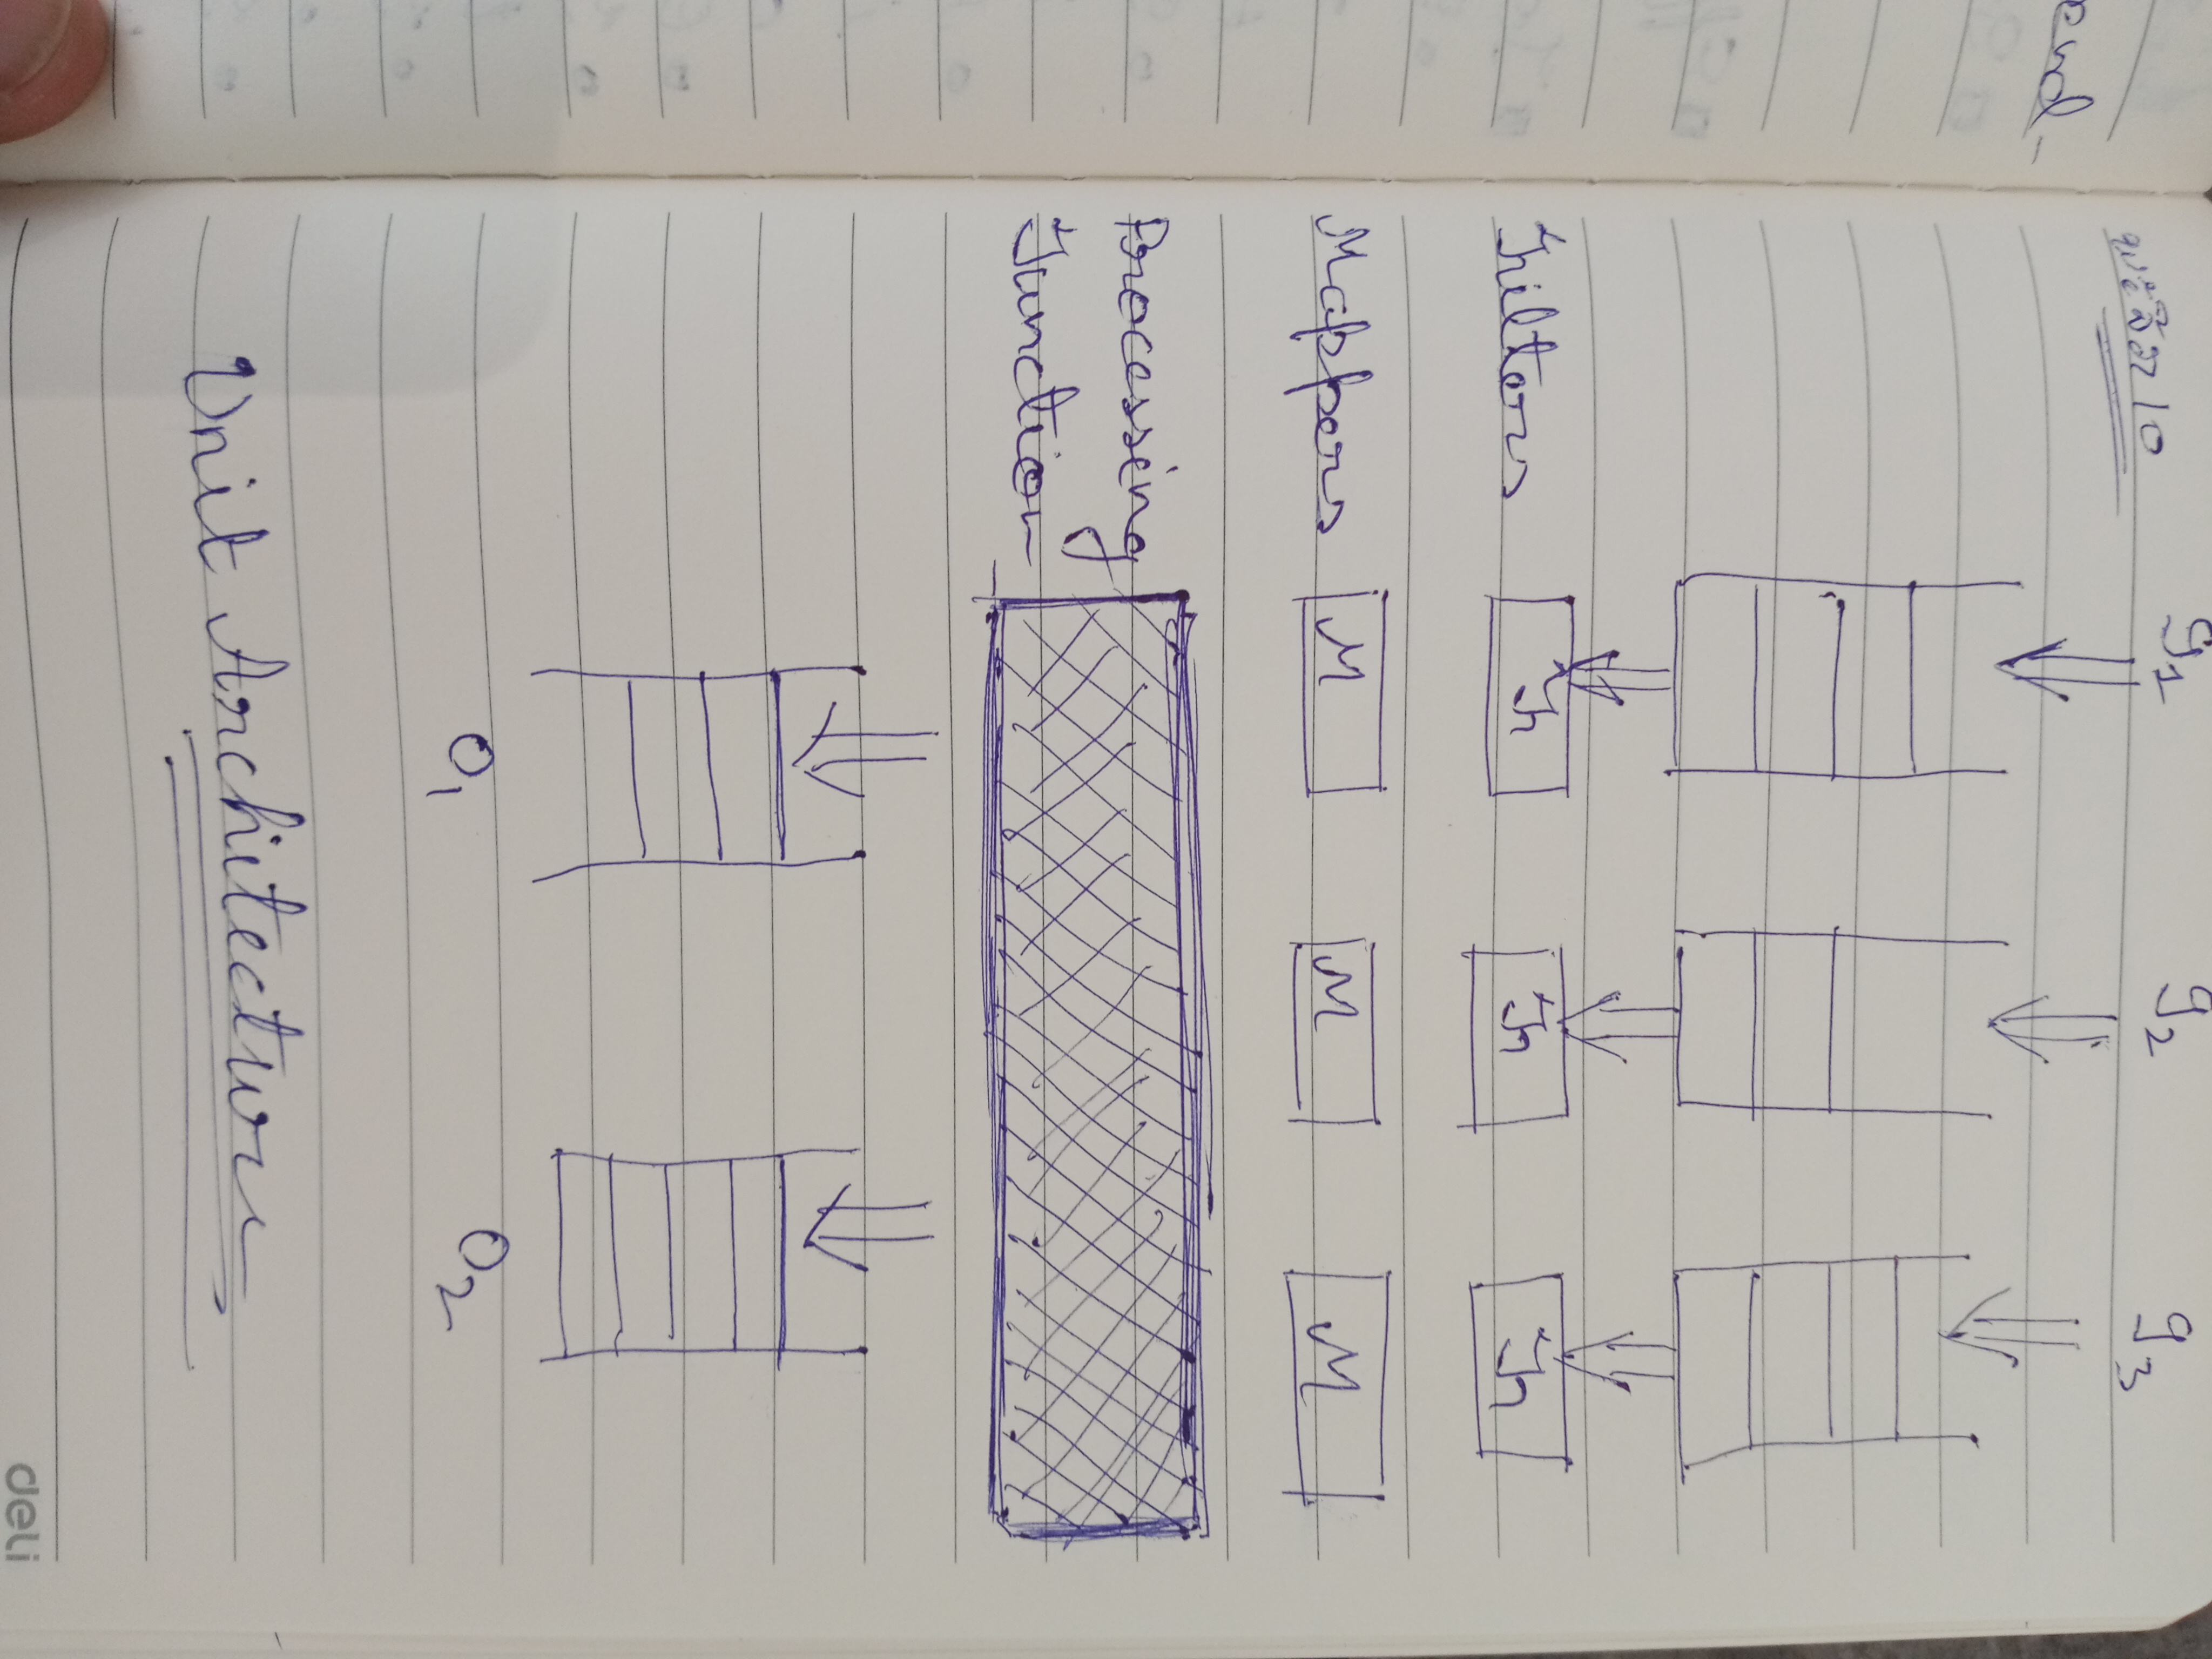 10
I1 I2 I3
end-
Filters Fn Fn Fn
Mappers M M M
Processing
Junction
O1 O2
Unit Architecture
deli